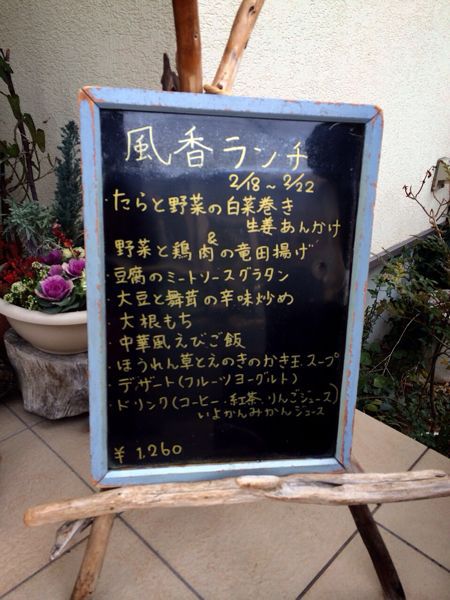 風香ランチ
2/18～2/22
・たらと野菜の白菜巻き
生姜あんかけ
&
野菜と鶏肉の竜田揚げ
・豆腐のミートソースグラタン
・大豆と舞茸の辛味炒め
・大根もち
・中華風えびご飯
・ほうれん草とえのきのかき玉スープ
・デザート(フルーツヨーグルト)
・ドリンク(コーヒー・紅茶・りんごジュース)
いよかんみかんジュース
¥1,260